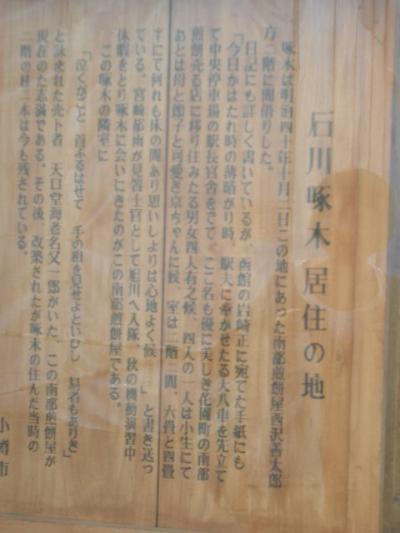 石川啄木居住の地
啄木は明治四十年十月二日この地にあった南部煎餅屋西沢善太郎
方二階に間借りした。
日記にも詳しく書いているが、函館の岩崎正に宛てた手紙にも
「今日かはたれ時の薄暗がり時、駅夫に牽かせたる大八車を先立て
て中央停車場の駅長官舎をでて、ここ名も優に美しき花園町の南部
煎餅売る店に移り住みたる男女四人有之候、四人の一人は小生にて
あとは母と節子と可愛き京ちゃんに候、室は二階二間、六畳と四畳
半にて何れも床の間あり思いしよりは心地よく候、 」と書き送っ
ている。宮崎郁雨が見習士官として旭川へ入隊、秋の機動演習中
休暇をとり啄木に会いにきたのがこの南部煎餅屋である。
この啄木の隣室に
「泣くがごと 首ふるはせて 手の相を見せよといひし 易者もありき」
と詠まれた売卜者 天口堂海老名又一郎がいた、この南部煎餅屋が
現在のた志満である。その後、改築されたが啄木の住んだ当時の
二階の柱二本は今も残されている。
小樽市